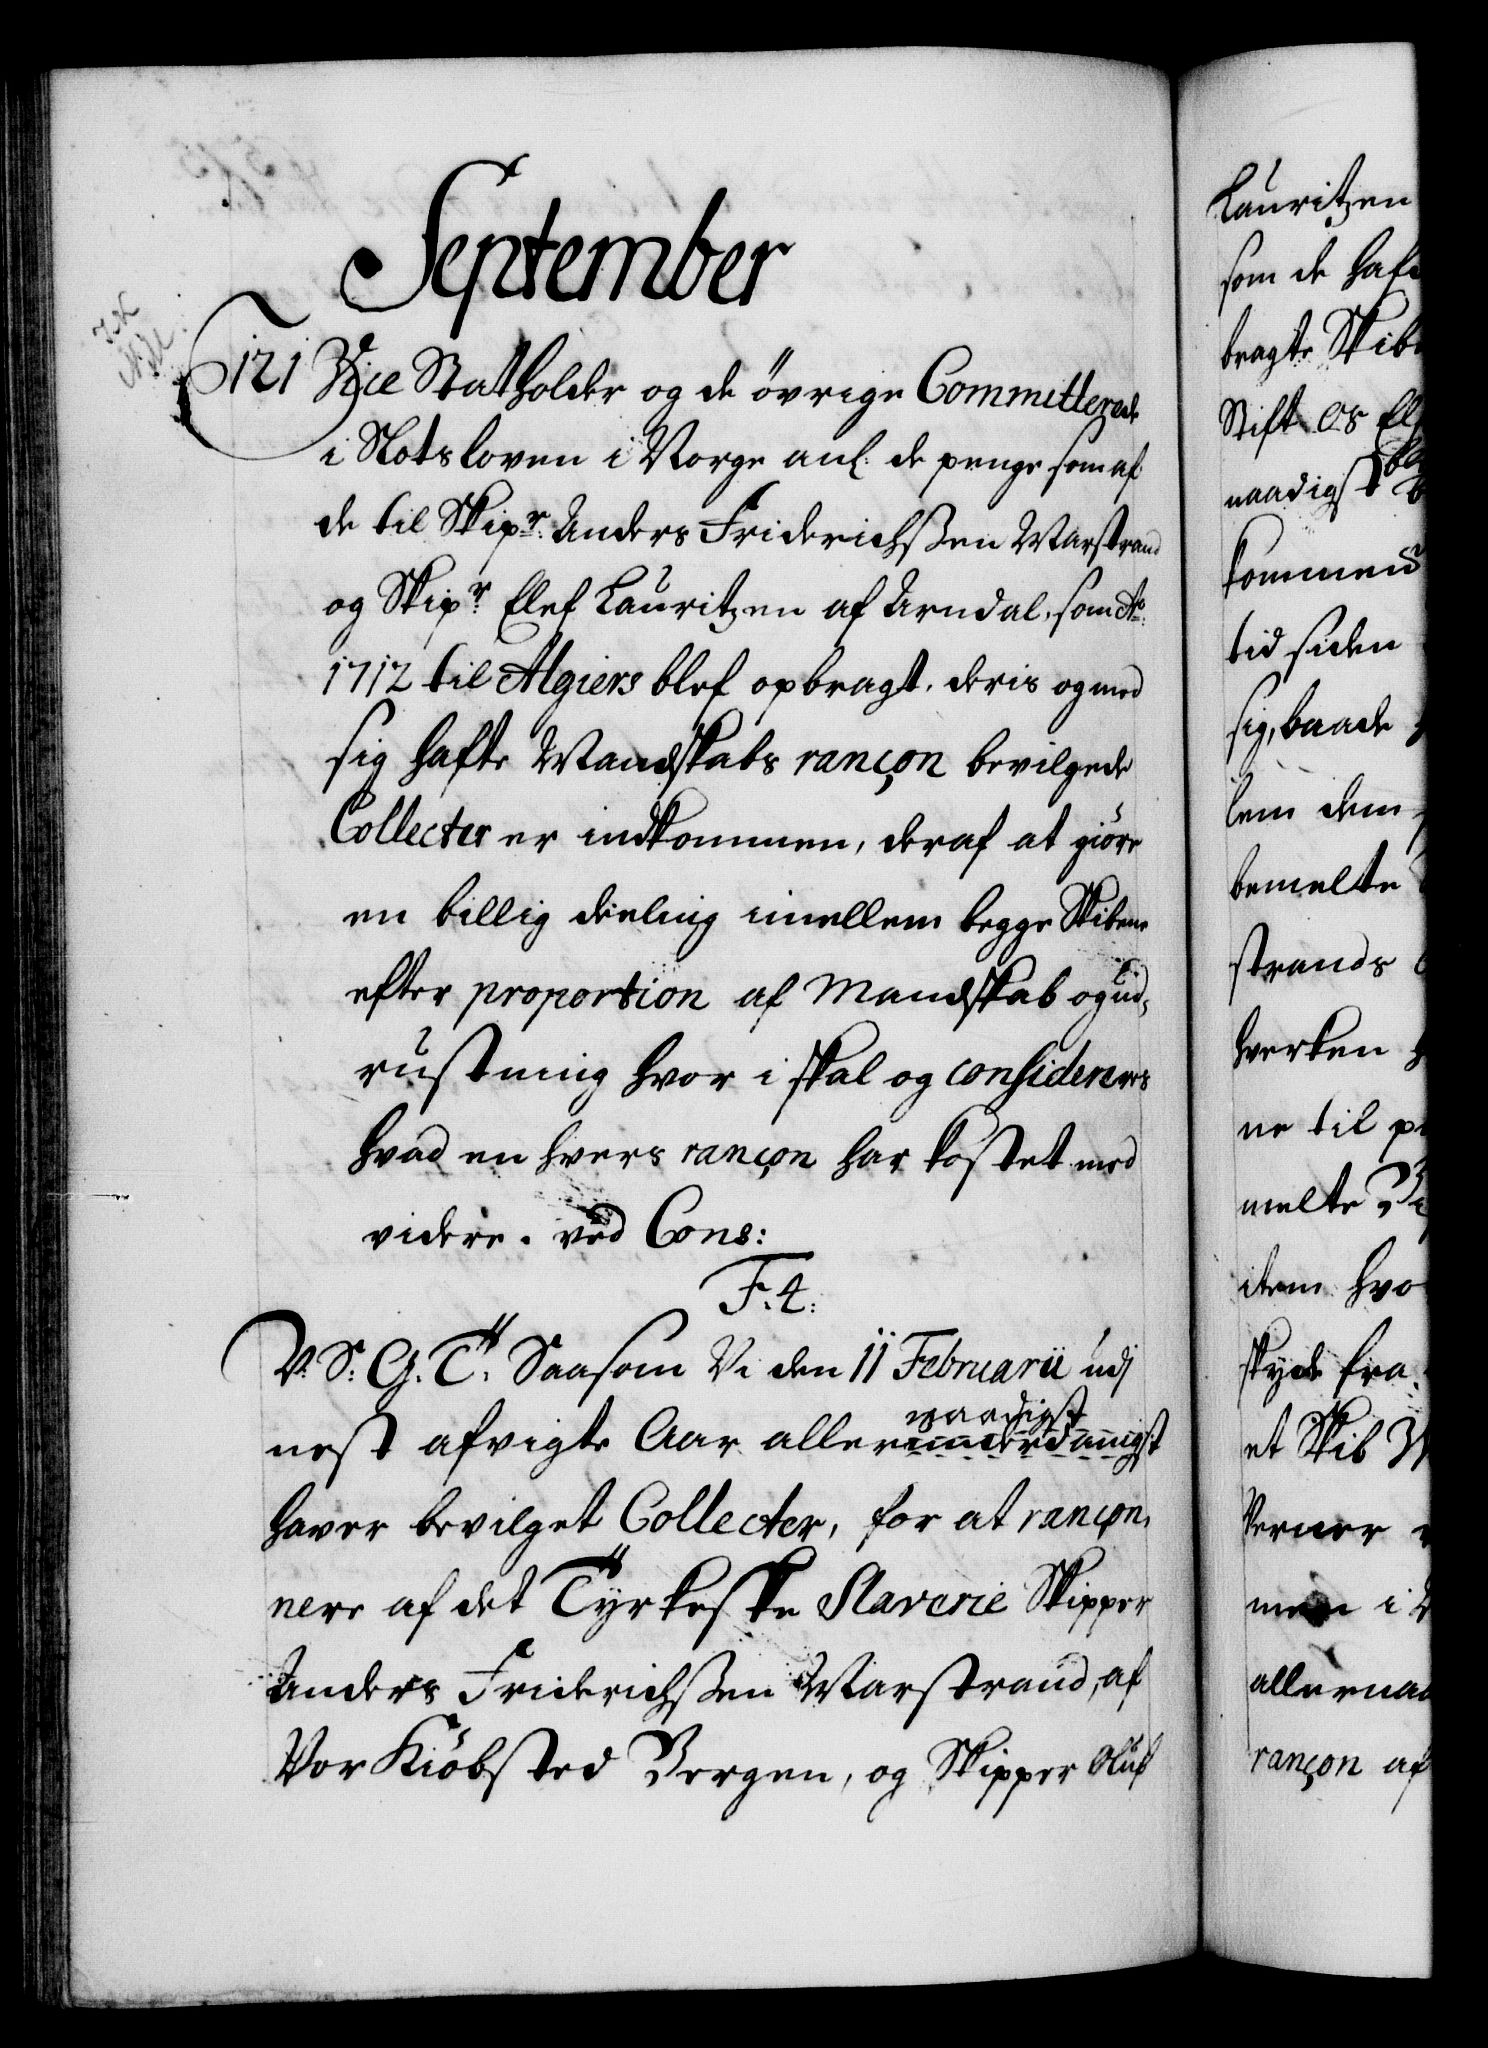 September
121 Vice Statholder og de övrige Committerede
i Slotsloven i Norge anl: de penge som af
de til Skipr: Anders Friderichßen Marstrand
og Skipr: Elef Lauritzen af Arndal, som Ao:
1712 til Algiers blef opbragt, deris og med
sig hafte Mandskabs rançon bevilgede
Collecter er indkommen, deraf at giöre
en billig deeling imellem begge Skibene
efter proportion af Mandskab og ud,
rustning hvor i skal og considereres
hvad en hvers rançon har kostet med
videre. ved Cons:
F. 4:
V. S: G. T: Saasom Vi den 11 Februarii udj
nest afvigte Aar allerunderdanigst
naadigst
haver bevilget Collecter, for at rançon,
nere af det Tyrkeske Slaverie Skipper
Anders Friderichßen Marstrand, af
Vor Kiöbsted Bergen, og Skipper Oluf
Lauritzen
som de haf
bragte Skib
Stift os
naadigst
kommen
tid siden
sig, baade
lem dem
bemelte
strands
hverken
ne til
melte
item hvo
skyde fra
et Skib
Verner
men i
allernaa
rançon af